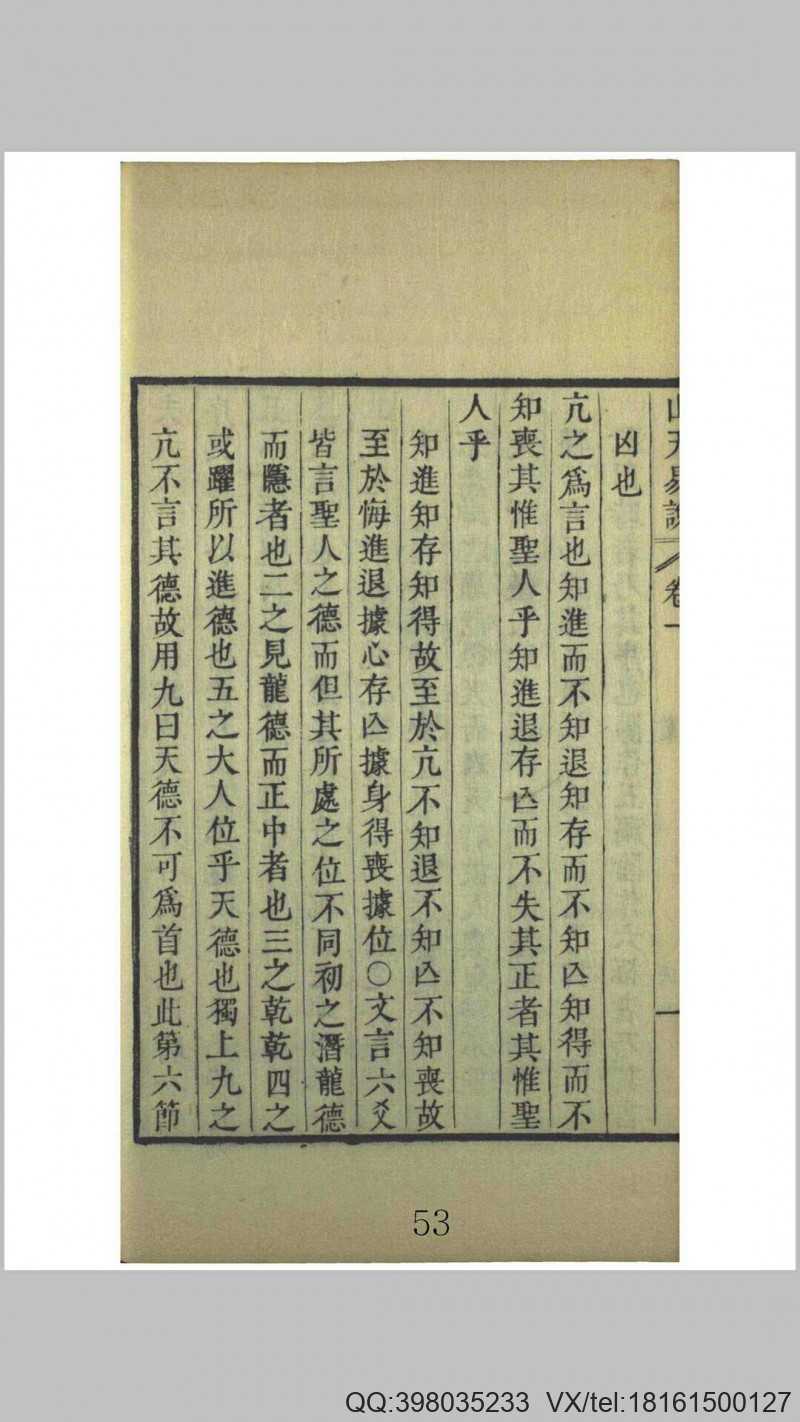 山天易說 卷一
凶也
亢之爲言也知進而不知退知存而不知亾知得而不
知喪其惟聖人乎知進退存亾而不失其正者其惟聖
人乎
知進知存知得故至於亢不知退不知亾不知喪故
至於悔進退據心存亾據身得喪據位○文言六爻
皆言聖人之德而但其所處之位不同初之潛龍德
而隱者也二之見龍德而正中者也三之乾乾四之
或躍所以進德也五之大人位乎天德也獨上九之
亢不言其德故用九曰天德不可爲首也此第六節
53
QQ:398035233 VX/tel:18161500127